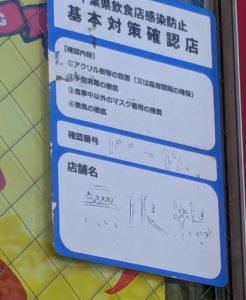 葉県飲食店感染防止
基本対策確認店
【確認内容】
①アクリル板等の設置（又は座席間隔の確保）
②手指消毒の徹底
③食事中以外のマスク着用の推奨
④換気の徹底
確認番号
店舗名